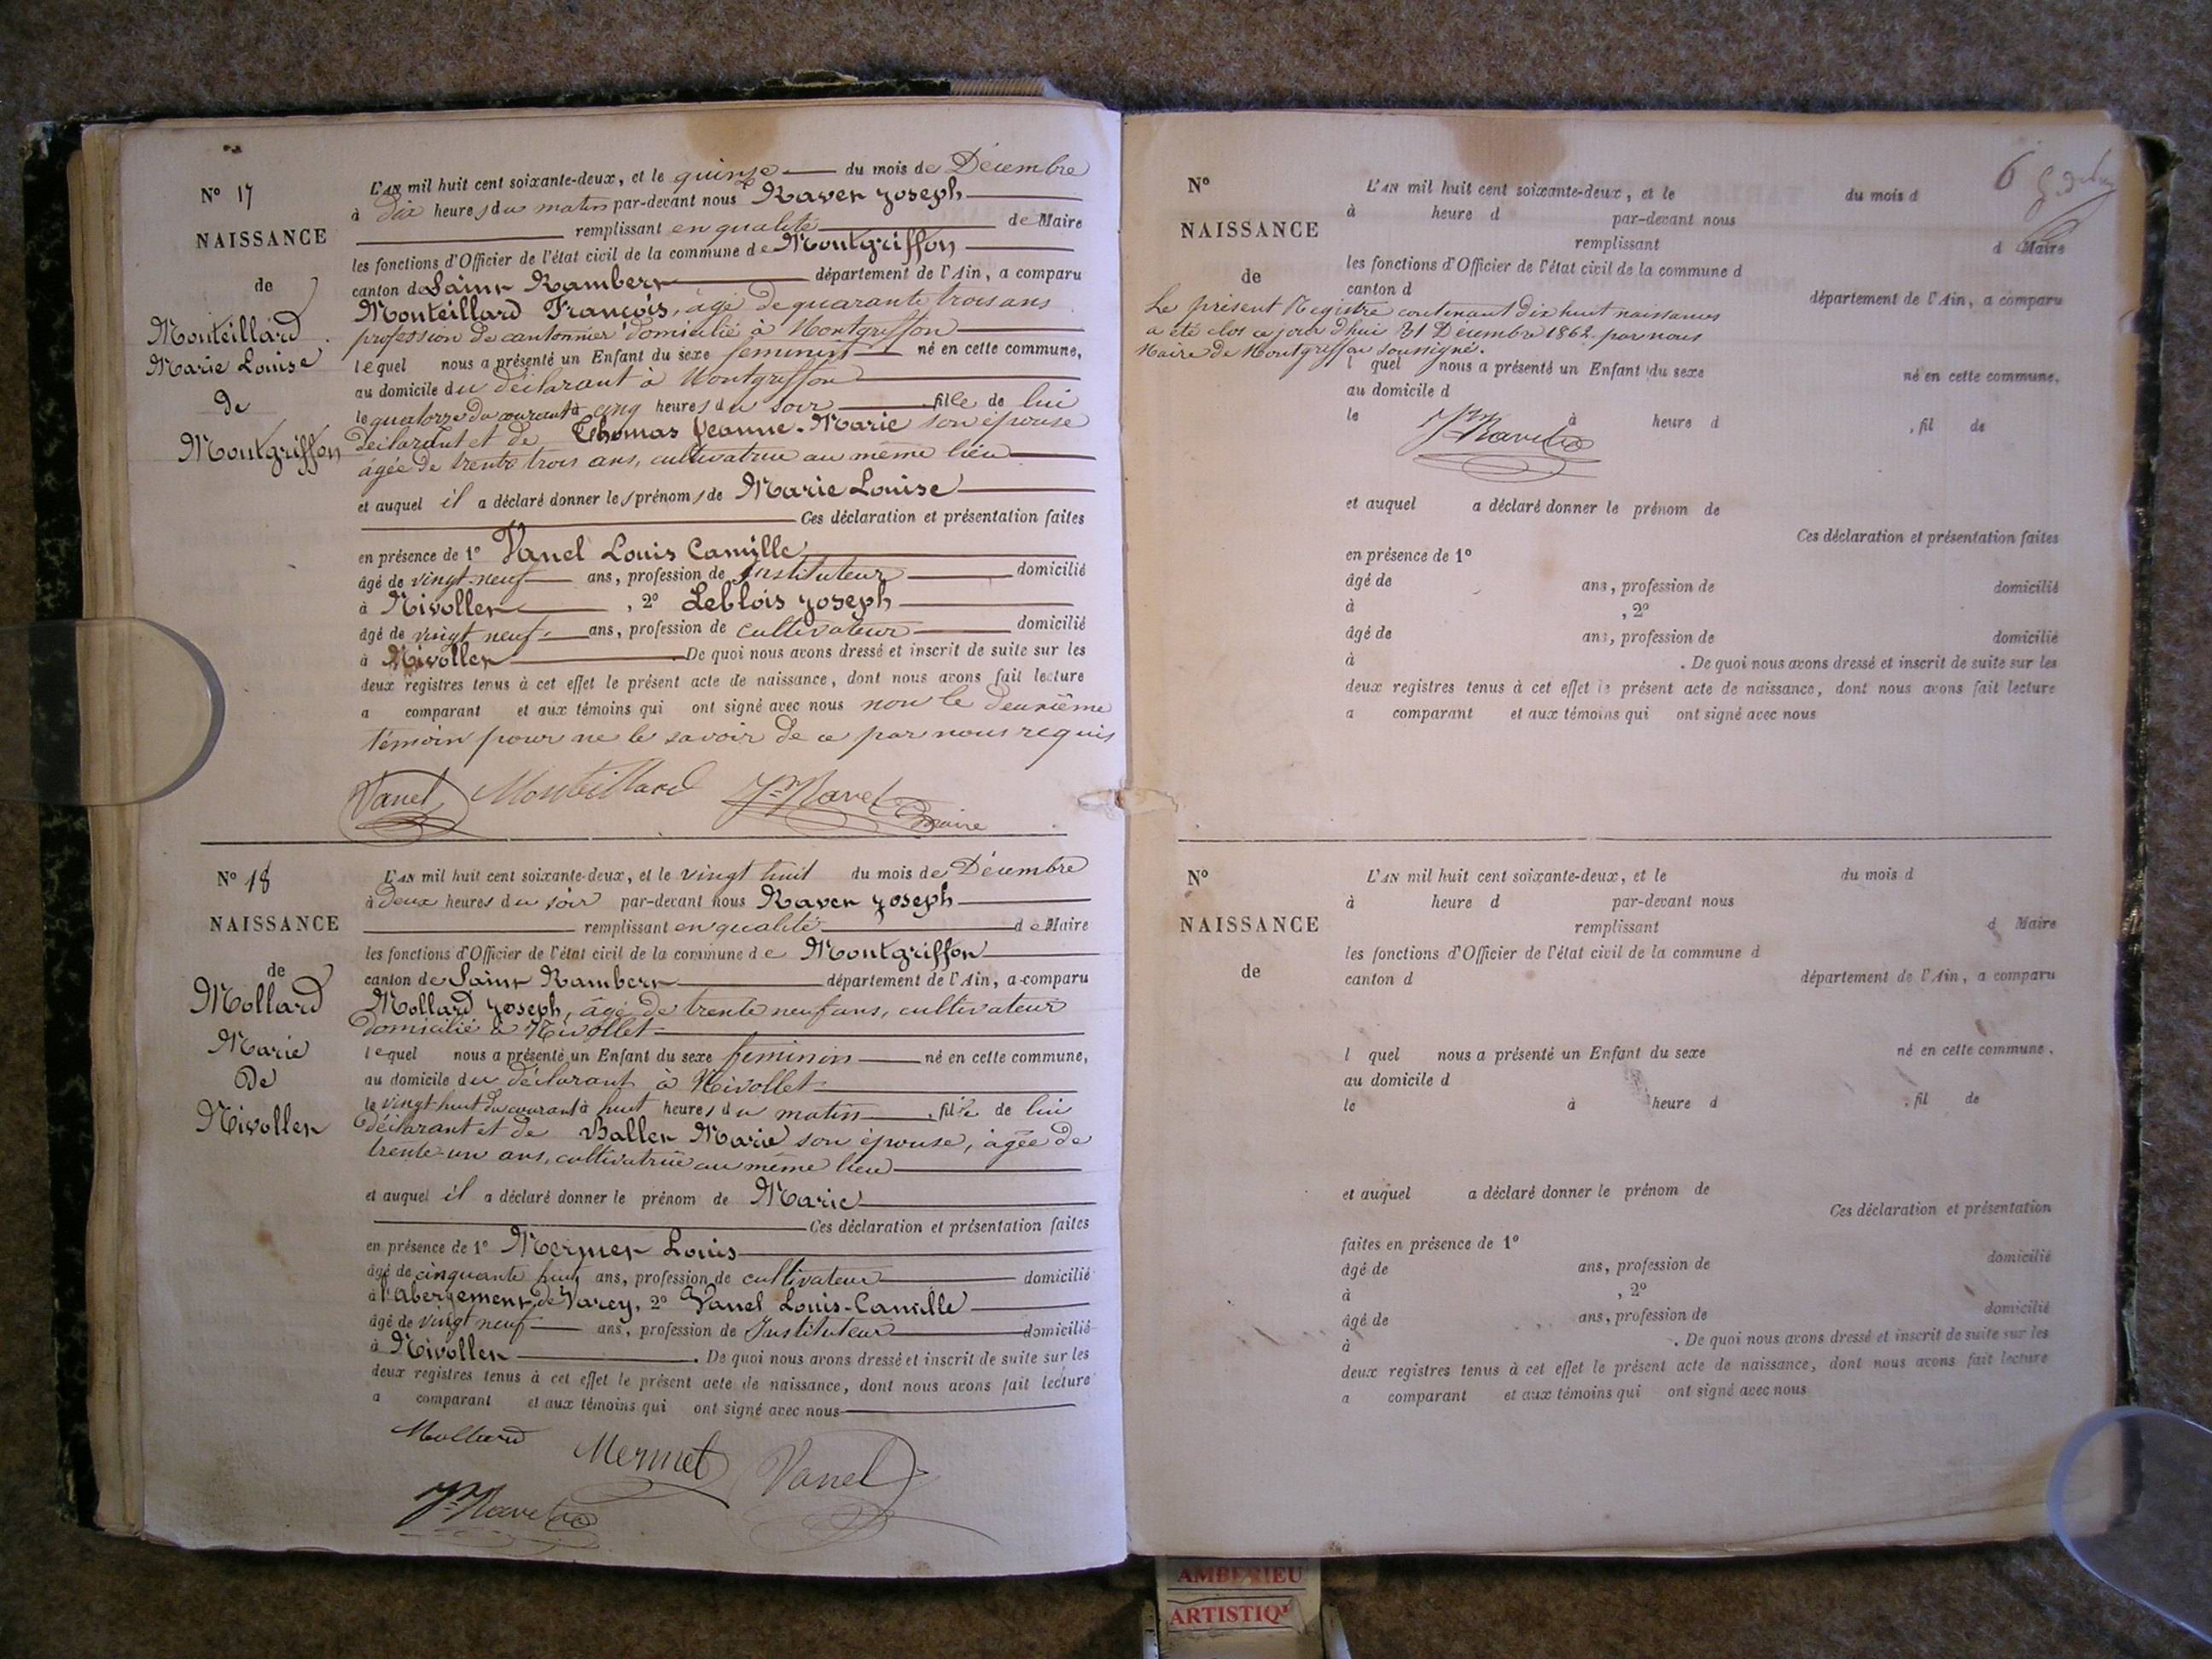 N° 17
NAISSANCE
de
Monteillard
Marie Louise
de
Montgriffon
L'AN mil huit cent soixante-deux, et le quinze du mois de Décembre
à dix heures du matin par-devant nous Ravet Joseph
remplissant en qualité de Maire
les fonctions d'Officier de l'état civil de la commune de Montgriffon
canton de Saint Rambert département de l'Ain, a comparu
Monteillard François, âgé de quarante trois ans
profession de cantonnier domicilié à Montgriffon
lequel nous a présenté un Enfant du sexe féminin né en cette commune,
au domicile du déclarant à Montgriffon
le quatorze du courant à cinq heures du soir fille de lui
déclarant et de Thomas Jeanne-Marie son épouse
âgée de trente trois ans, cultivatrice au même lieu
et auquel il a déclaré donner les prénoms de Marie Louise
Ces déclaration et présentation faites
en présence de 1° Vanel Louis Camille
âgé de vingt-neuf ans, profession de Instituteur domicilié
à Nivollet , 2° Leblois Joseph
âgé de vingt neuf ans, profession de cultivateur domicilié
à Nivollet De quoi nous avons dressé et inscrit de suite sur les
deux registres tenus à cet effet le présent acte de naissance, dont nous avons fait lecture
a comparant et aux témoins qui ont signé avec nous non le deuxième
témoin pour ne le savoir de ce par nous requis
Vanel Monteillard Jh Ravet
Maire
N° 18
NAISSANCE
de
Mollard
Marie
De
Nivollet
L'AN mil huit cent soixante-deux, et le vingt huit du mois de Décembre
à deux heures du soir par-devant nous Ravet Joseph
remplissant en qualité de Maire
les fonctions d'Officier de l'état civil de la commune de Montgriffon
canton de Saint Rambert département de l'Ain, a comparu
Mollard Joseph, âgé de trente neuf ans, cultivateur
domicilié à Nivollet
lequel nous a présenté un Enfant du sexe féminin né en cette commune,
au domicile du déclarant à Nivollet
le vingt huit du courant à huit heures du matin , fille de lui
déclarant et de Ballet Marie son épouse, âgée de
trente-un ans, cultivatrice au même lieu
et auquel il a déclaré donner le prénom de Marie
Ces déclaration et présentation faites
en présence de 1° Mermet Louis
âgé de cinquante huit ans, profession de cultivateur domicilié
à l'Abergement de Varey, 2° Vanel Louis-Camille
âgé de vingt neuf ans, profession de Instituteur domicilié
à Nivollet . De quoi nous avons dressé et inscrit de suite sur les
deux registres tenus à cet effet le présent acte de naissance, dont nous avons fait lecture
a comparant et aux témoins qui ont signé avec nous
Mollard Mermet Vanel
Jh Ravet
6
N°
NAISSANCE
de
L'AN mil huit cent soixante-deux, et le du mois d
à heure d par-devant nous
remplissant d Maire
les fonctions d'Officier de l'état civil de la commune d
canton d département de l'Ain, a comparu
Le présent Registre contenant dix huit naissances
a été clos ce jour d'hui 31 Décembre 1862 par nous
Maire de Montgriffon soussigné.
l quel nous a présenté un Enfant du sexe né en cette commune.
au domicile d
le à heure d , fil de
Jh Ravet
et auquel a déclaré donner le prénom de
Ces déclaration et présentation faites
en présence de 1°
âgé de ans, profession de domicilié
à , 2°
âgé de ans, profession de domicilié
à . De quoi nous avons dressé et inscrit de suite sur les
deux registres tenus à cet effet le présent acte de naissance, dont nous avons fait lecture
a comparant et aux témoins qui ont signé avec nous
N°
NAISSANCE
de
L'AN mil huit cent soixante-deux, et le du mois d
à heure d par-devant nous
remplissant d Maire
les fonctions d'Officier de l'état civil de la commune d
canton d département de l'Ain, a comparu
l quel nous a présenté un Enfant du sexe né en cette commune.
au domicile d
le à heure d , fil de
et auquel a déclaré donner le prénom de
Ces déclaration et présentation
faites en présence de 1°
âgé de ans, profession de domicilié
à , 2°
âgé de ans, profession de domicilié
à . De quoi nous avons dressé et inscrit de suite sur les
deux registres tenus à cet effet le présent acte de naissance, dont nous avons fait lecture
a comparant et aux témoins qui ont signé avec nous
AMBERIEU
ARTISTIQ